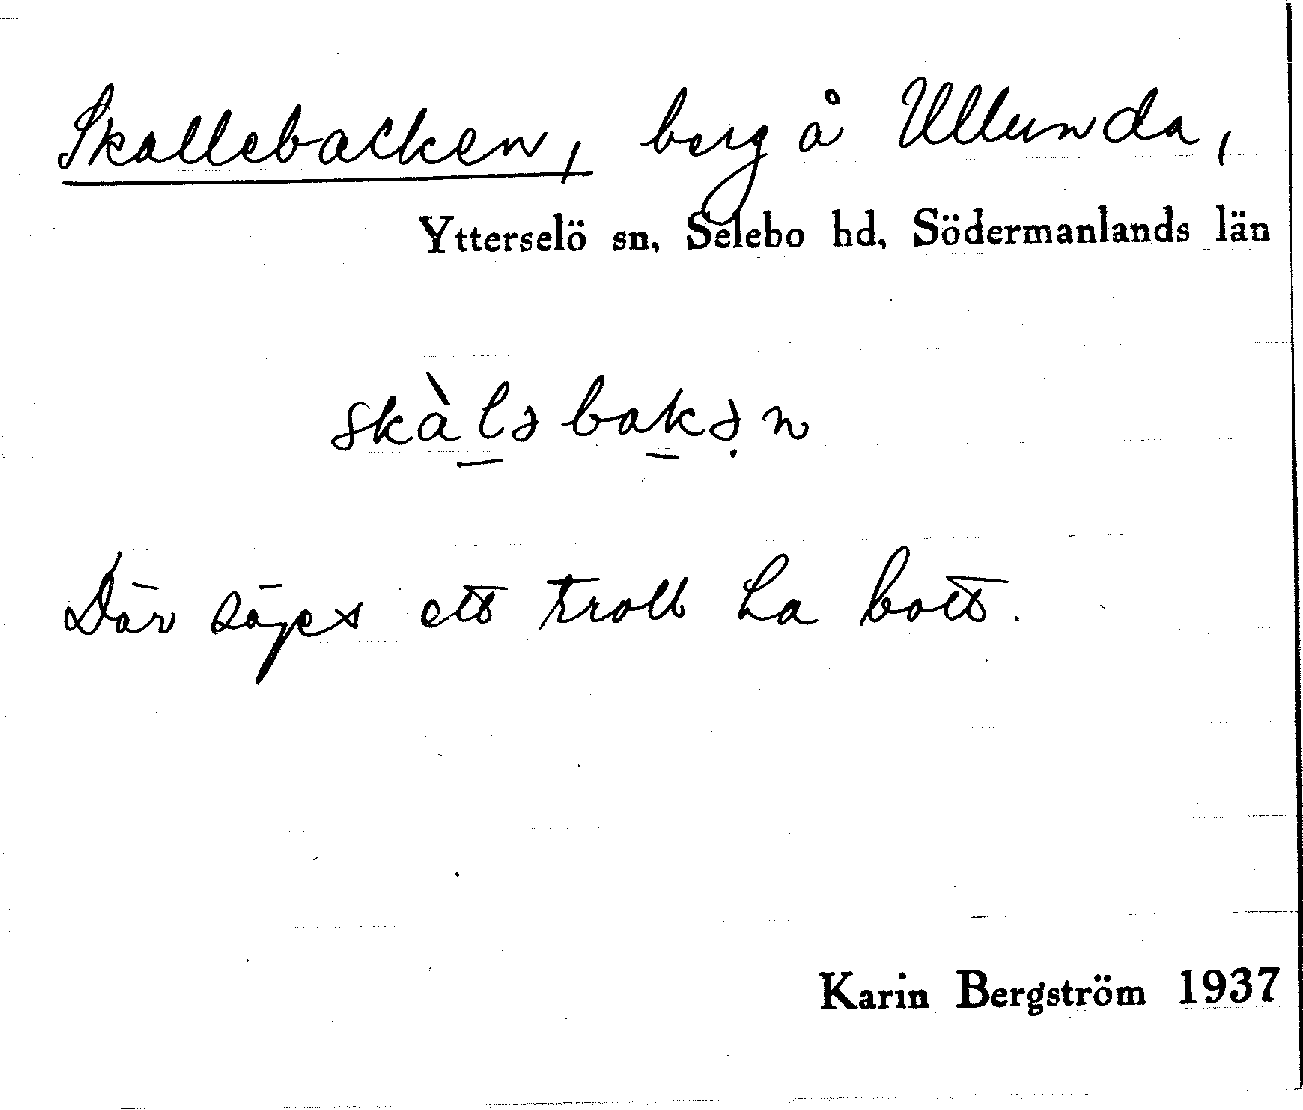 Skallebacken, berg å Ullunda,
Ytterselö sn, Selebo hd, Södermanlands län
skàl̲əbak̲ə̣n
Där säges ett troll ha bott.
Karin Bergström 1937